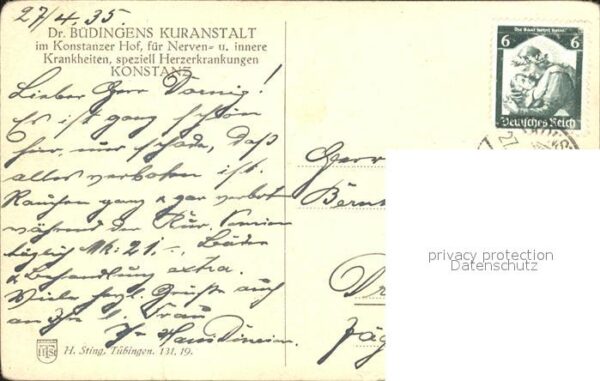 27/4.35.
Dr. BÜDINGENS KURANSTALT
im Konstanzer Hof, für Nerven- u. innere
Krankheiten, speziell Herzerkrankungen
KONSTANZ
Lieber Herr !
Es ist ganz schön
hier, nur schade, daß
alles verboten ist.
Rauchen ganz & gar verbot
während der Kur. Pension
täglich Mk: 21.-. Bäder
& Behandlung extra.
Viele herzl. Grüße auch
an Ihre l. Frau
Ihr
H. Sting, Tübingen. 131. 19.
Die Saar kehrt heim!
6 6
Deutsches Reich
27.
Herr
privacy protection
Datenschutz